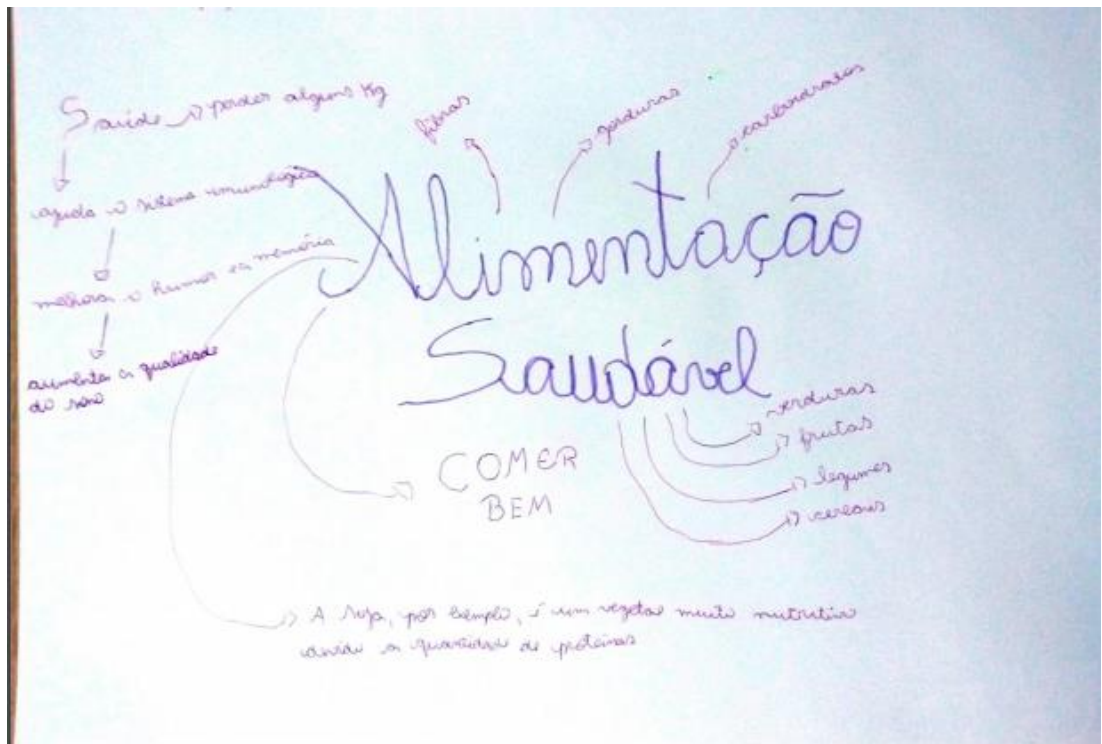 Saúde perder alguns Kg
ajuda o sistema imunológico
melhora o humor e a memória
aumenta a qualidade
do sono
fibras
gorduras
carboidratos
Alimentação
Saudável
verduras
frutas
legumes
cereais
COMER
BEM
A soja, por exemplo, é um vegetal muito nutritivo
devido a quantidade de proteínas